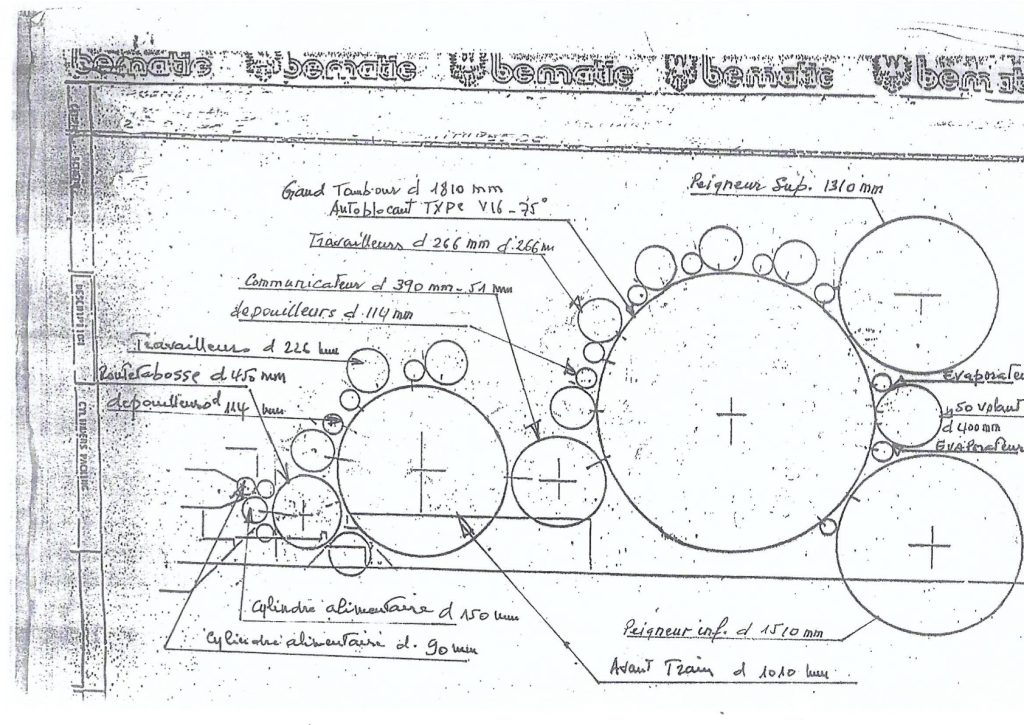 bematic bematic bematic bematic bemat
Grand Tambour d 1810 mm
Autoblocant TYPe V16-75°
Peigneur Sup. 1310 mm
Travailleurs d 266 mm d'266m
Communicateur d 390 mm-51 mm
depouilleurs d 114 mm
Travailleurs d 226 mm
Routetabosse d 450 mm
depouilleurs d 114 mm
Evaporateu
450 volant
d 400 mm
Evaporateur
DESCRIPTION
Cylindre alimentaire d 150 mm
Cylindre alimentaire d. 90 mm
Peigneur inf. d 1510 mm
Avant Train d 1010 mm